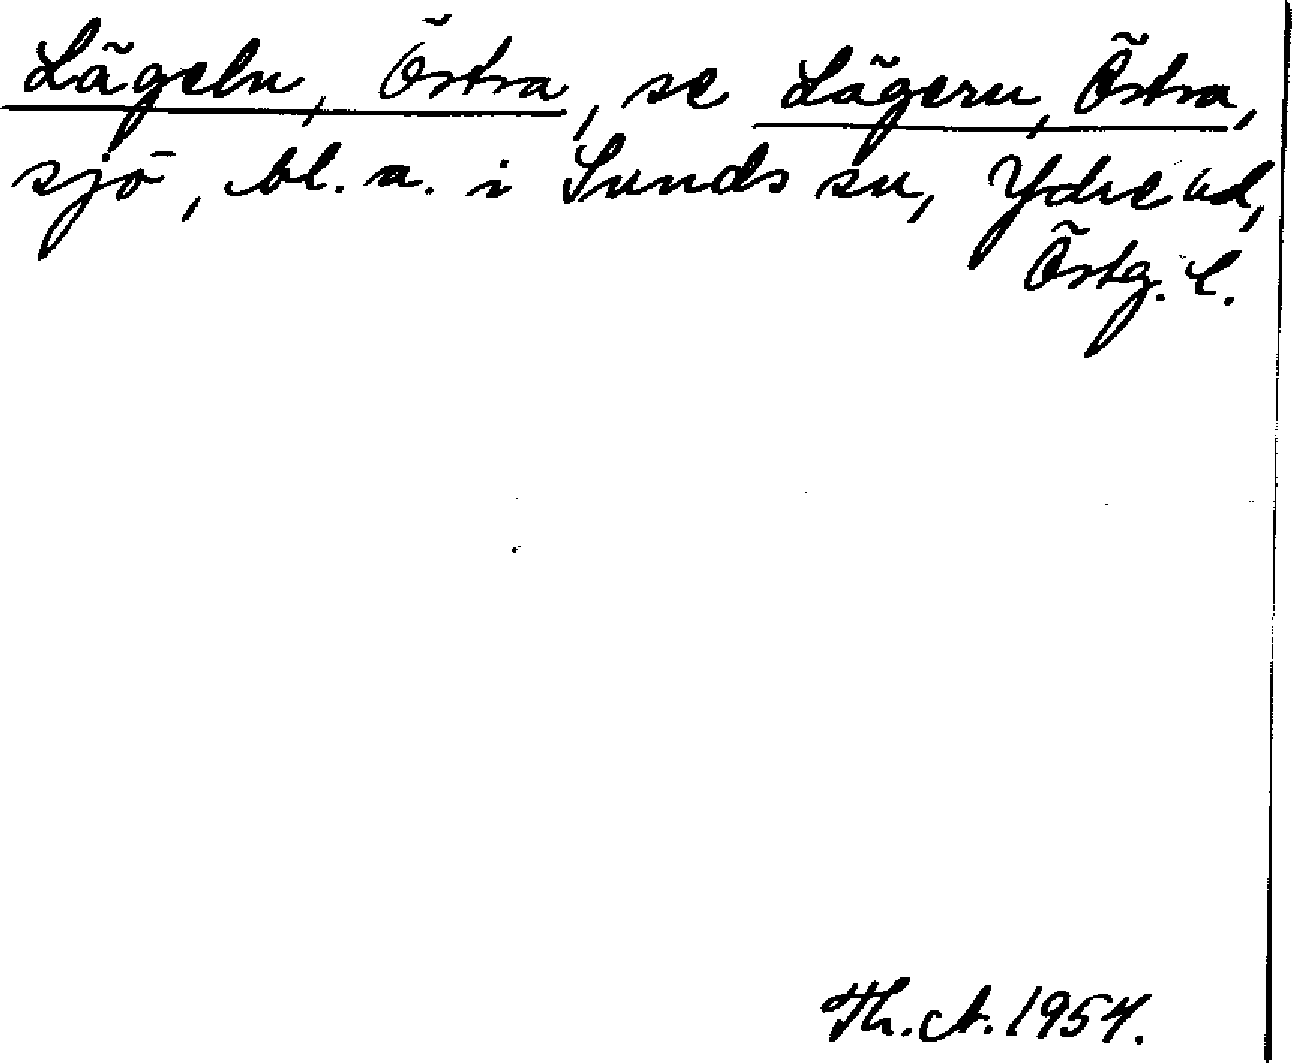 Lägeln, Östra, se Lägern, Östra,
sjö, bl. a. i Sunds sn, Ydre hd,
Östg. l.
Th. A. 1954.